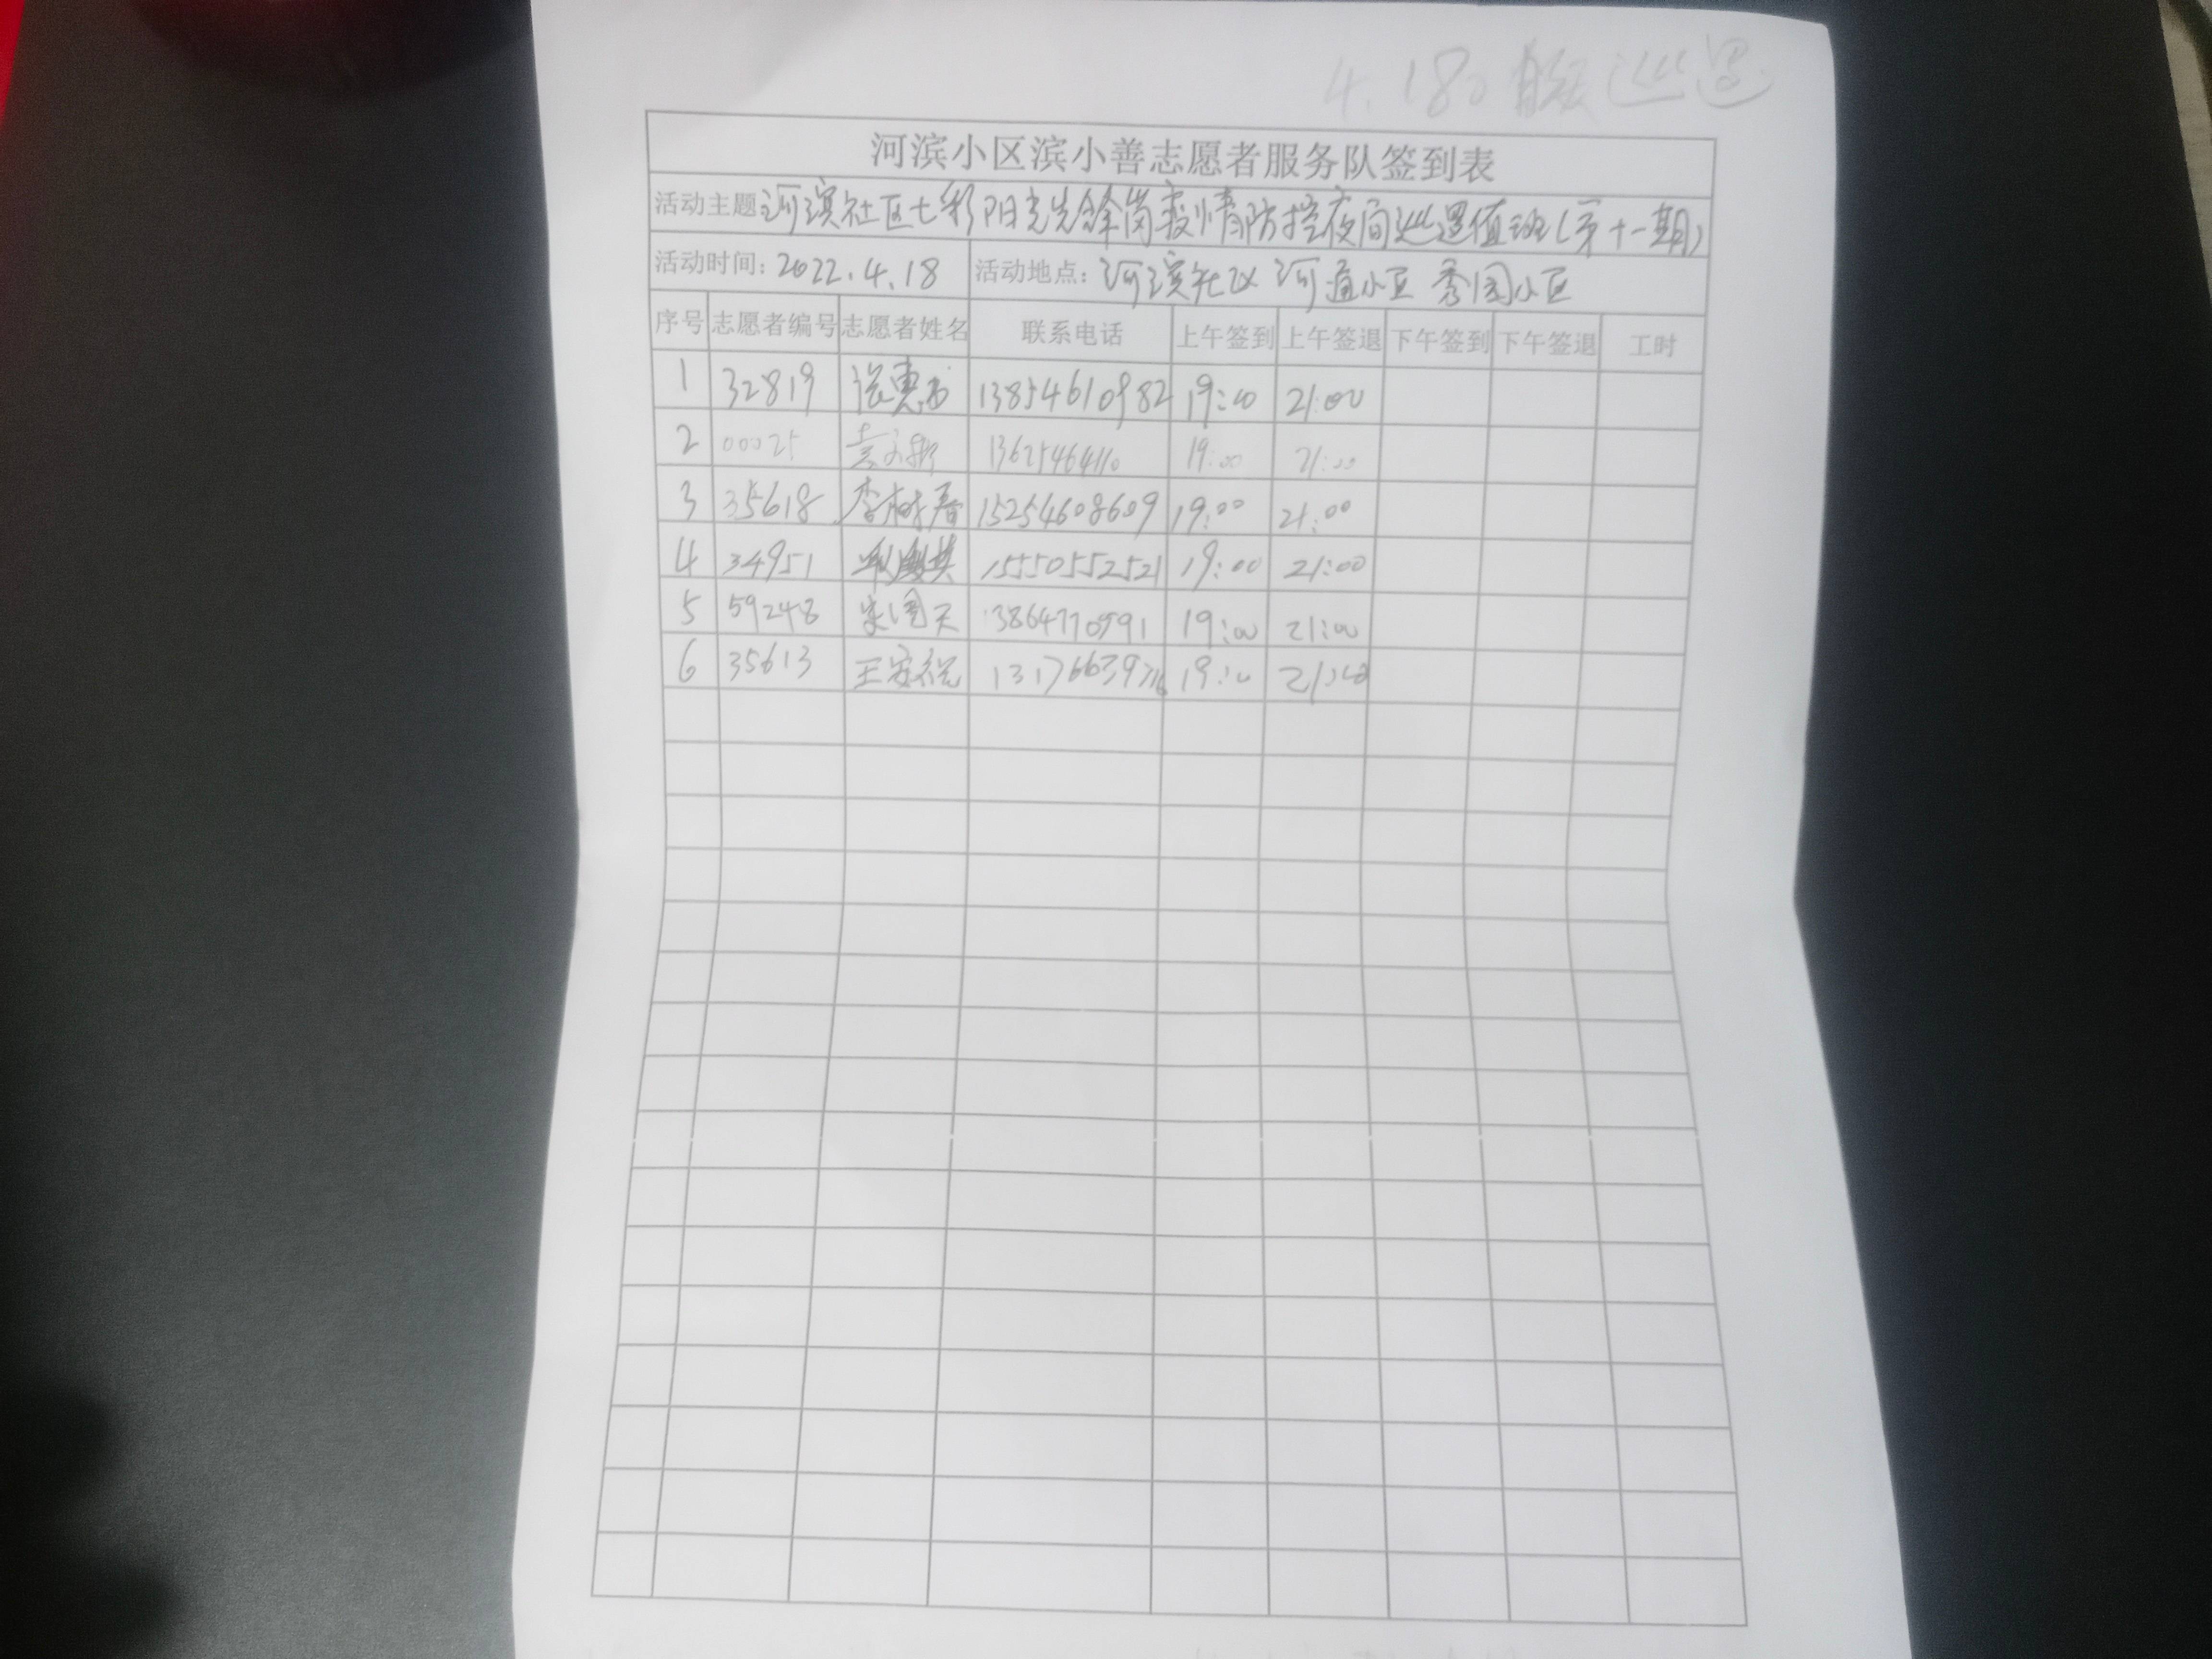 4.18
河滨小区滨小善志愿者服务队签到表
活动主题 河滨社区七彩阳光先锋岗疫情防控夜间巡逻值班(第十一期)
活动时间: 2022.4.18 活动地点: 河滨社区 河道小区 秀园小区
序号 志愿者编号 志愿者姓名 联系电话 上午签到 上午签退 下午签到 下午签退 工时
1 32819 13854610982 19:00 21:00
2 00025 13625464110 19:00 21:00
3 35618 李树春 15254608609 19:00 21:00
4 34951 15550552521 19:00 21:00
5 59248 13864770591 19:00 21:00
6 35613 王安祝 19:00 21:00